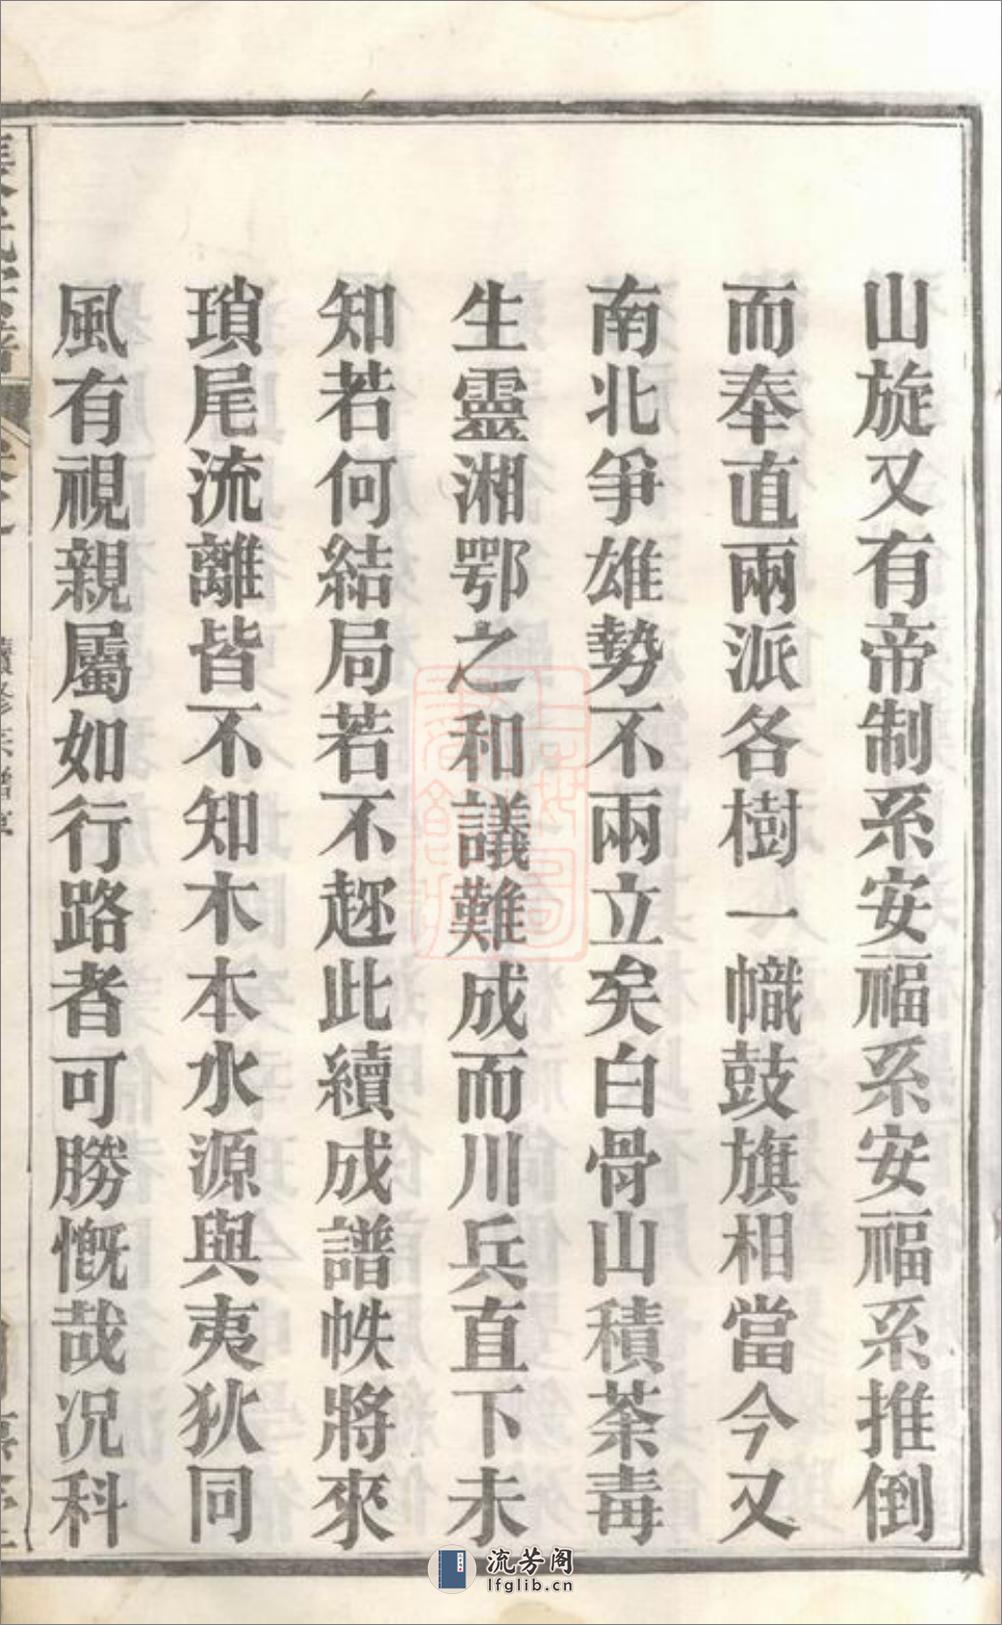 山旋又有帝制系安福系安福系推倒
而奉直兩派各樹一幟鼓旗相當今又
南北爭雄勢不兩立矣白骨山積荼毒
生靈湘鄂之和議難成而川兵直下未
知若何結局若不趂此續成譜帙將來
瑣尾流離皆不知木本水源與夷狄同
風有視親屬如行路者可勝慨哉况科
流芳阁
lfglib.cn